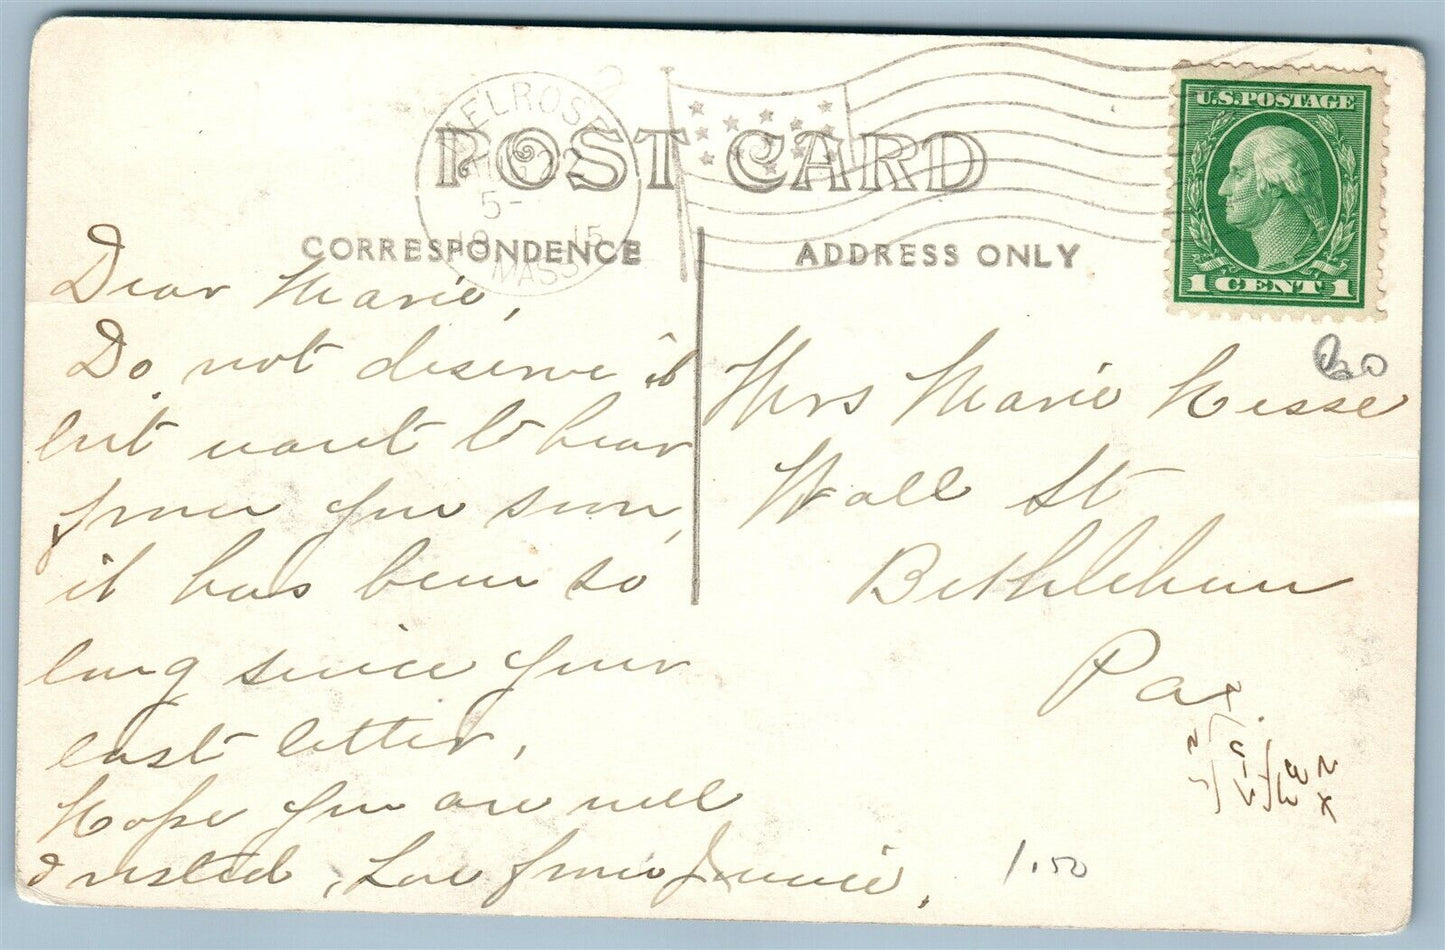 POST CARD
MELROSE
22
5-
19 15
MASS.
U.S. POSTAGE
1 CENT 1
CORRESPONDENCE
ADDRESS ONLY
Dear Marie,
Do not deserve it
but want to hear
from you soon,
it has been so
long since your
last letter.
Hope you are well
& rested, Love from Jennie.
Mrs Marie Hesse
Wall St
Bethlehem
Pa.
1.50